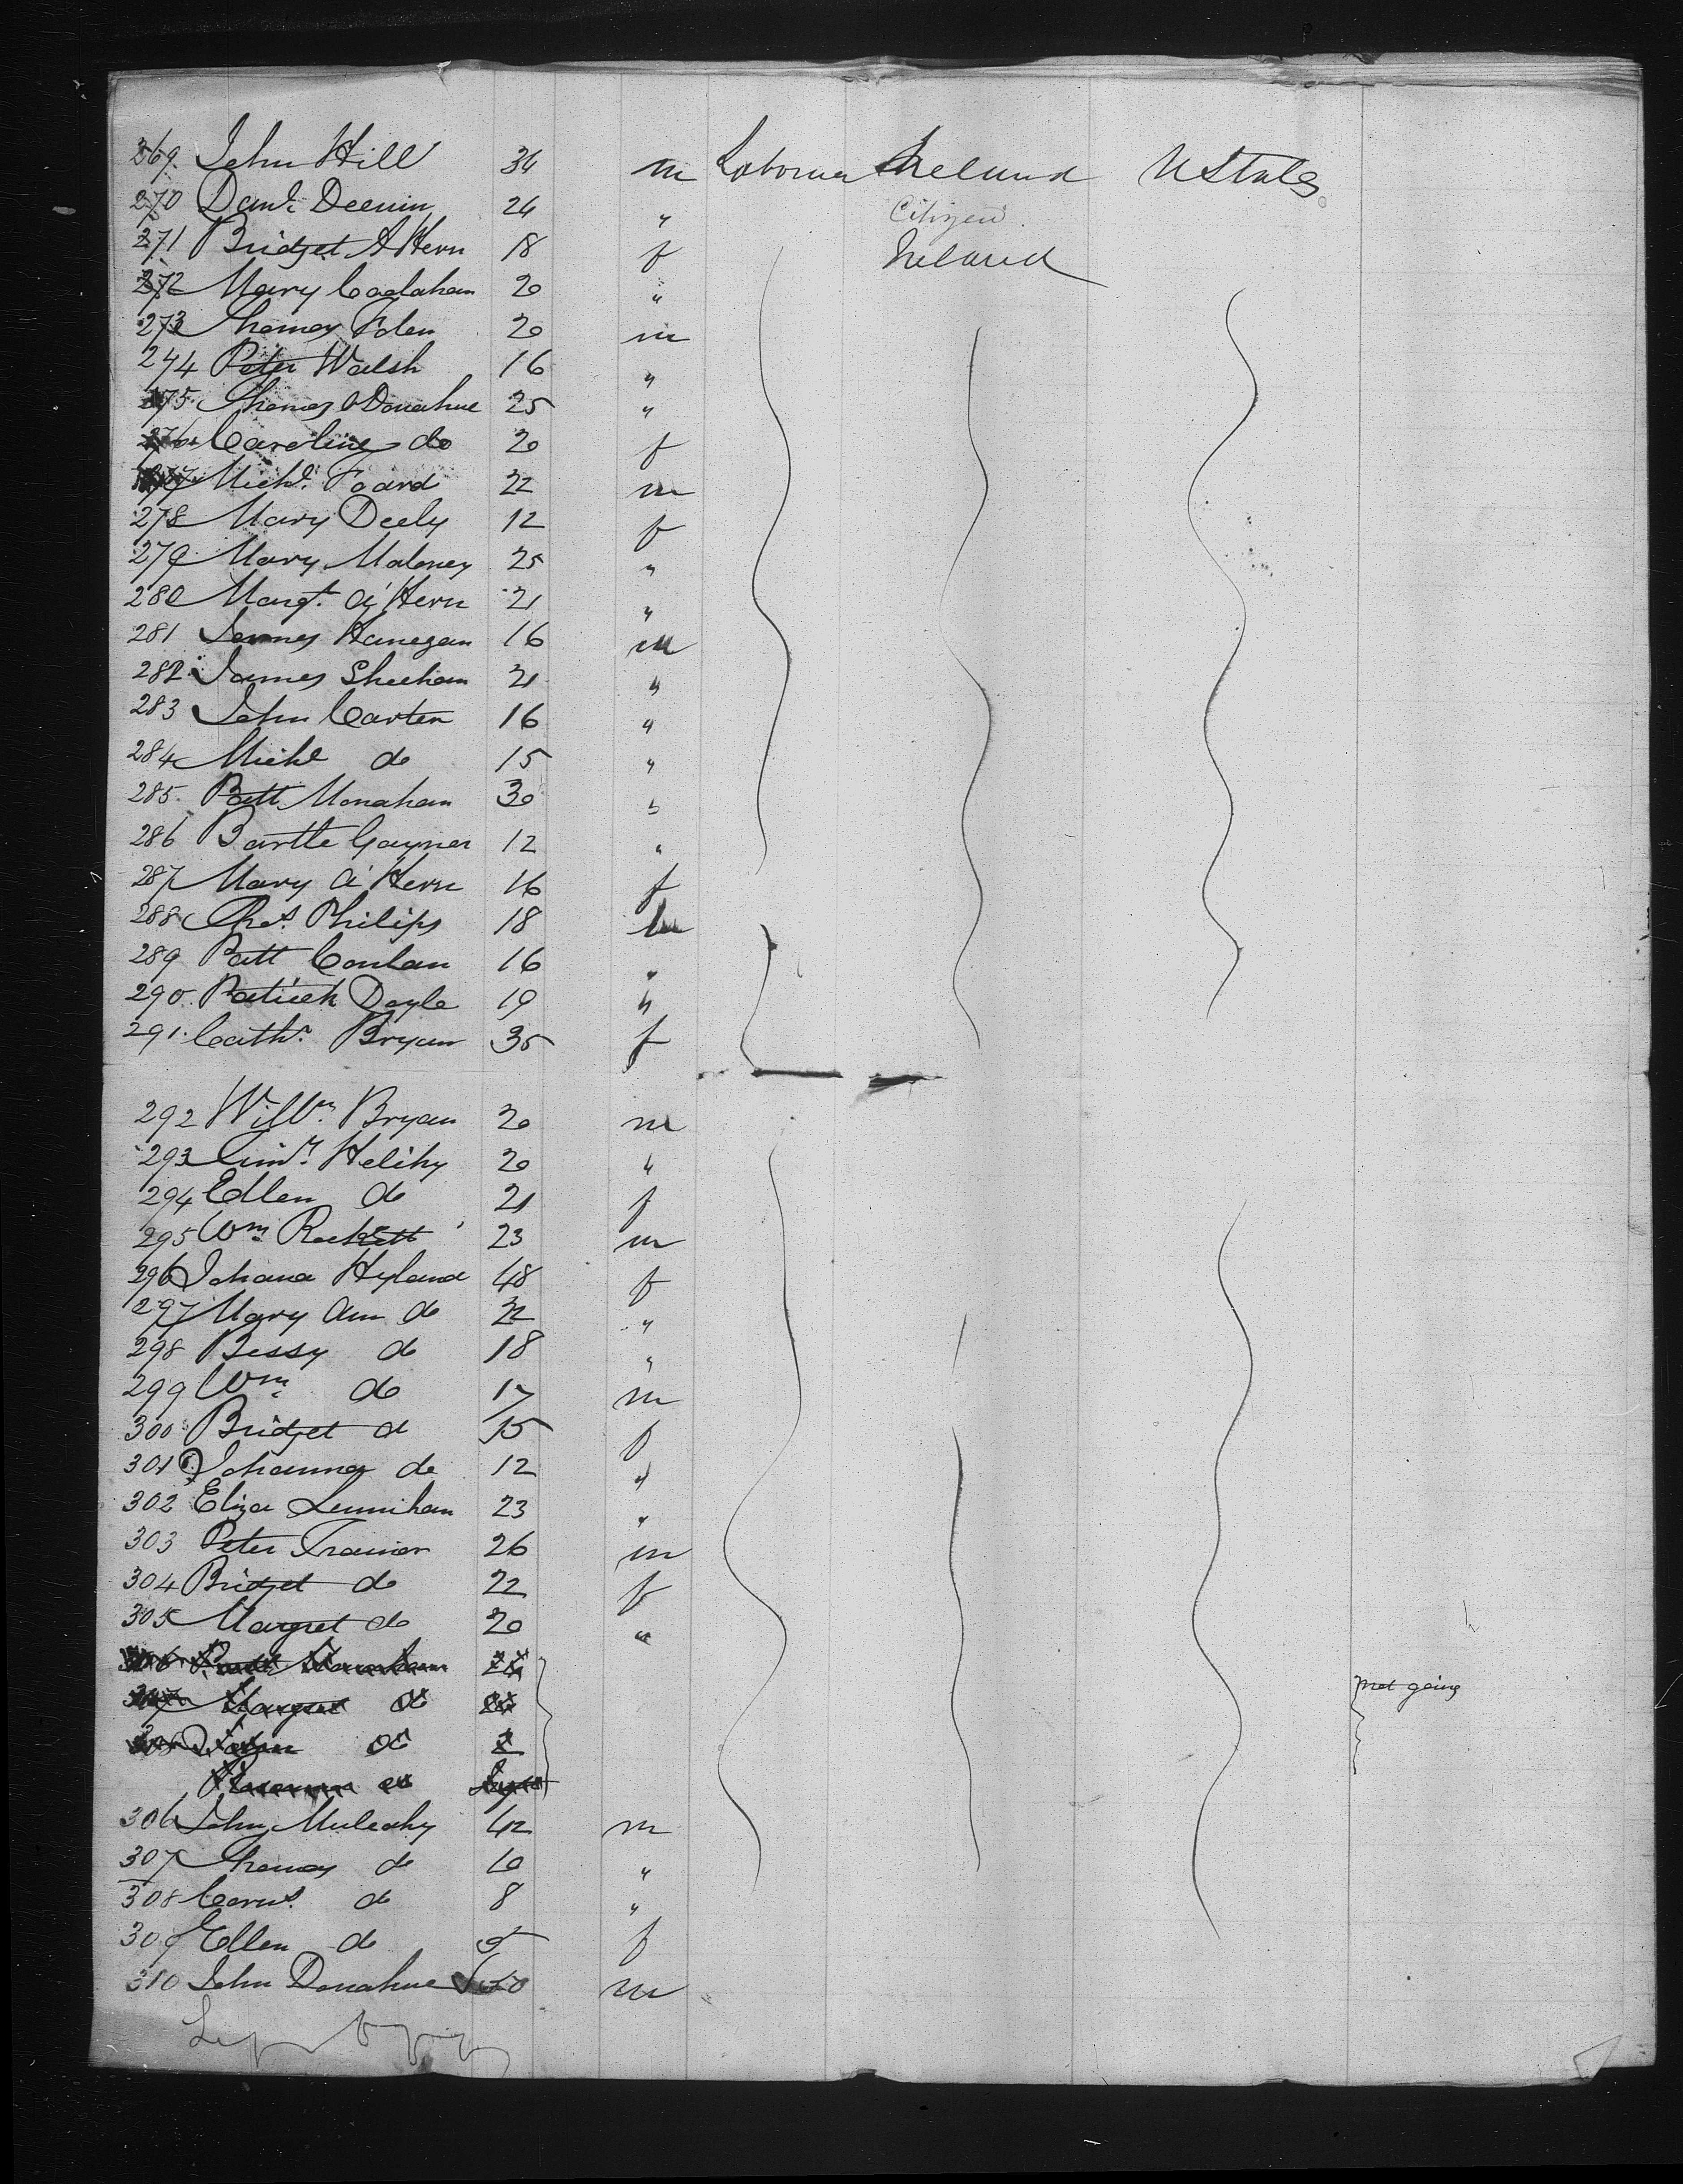 269. John Hill 34 m Laborer Ireland U States
270 Danl. Deenin 24 " Citizen
271 Bridget A Hern 18 f Ireland
272 Mary Caolahan 20 "
273 Thomas Folen 20 m
274 Peter Walsh 16 "
275 Thomas O Donahue 25 "
276 Caroline do 20 f
277 Michl. Foard 22 m
278 Mary Deely 12 f
279 Mary Maloney 25 "
280 Margt. A'Hern 21 "
281 James Hanegan 16 m
282 James Sheehan 21 "
283 John Carter 16 "
284 Michl do 15 "
285. Patt Monahan 30 "
286 Bartle Gayner 12 "
287 Mary A'Hern 16 f
288 Chas. Philips 18 m
289 Patt Conlan 16 "
290. Patrick Doyle 19 "
291. Cathr. Bryan 35 f
292 Willm. Bryan 20 m
293 Timy. Helihy 20 "
294 Ellen do 21 f
295 Wm. Rockett 23 m
296 Johana Hyland 48 f
297 Mary Ann do 22 "
298 Bessy do 18 "
299 Wm. do 17 m
300 Bridget d 15 f
301 Johanna do 12 "
302 Eliza Lennihan 23 "
303 Peter Trainor 26 m
304 Bridget do 22 f
305 Margret do 20 "
306 Patt
307 Margret do not going
308 do 2
do
306 John Mulcahy 42 m
307 Thomas do 10 "
308 Corns. do 8 "
309 Ellen do 5 f
310 John Donahue 50 m